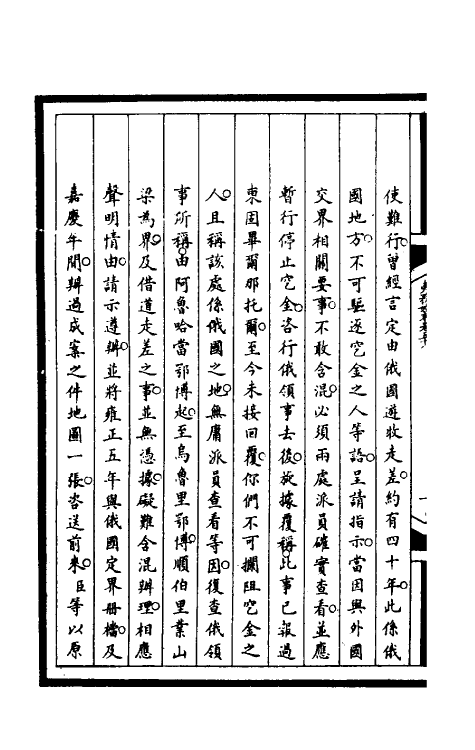 使難行曾經言定由俄國遊牧走差約有四十年此係俄
國地方不可驅逐穵金之人等語呈請指示當因與外國
交界相關要事不敢含混必須兩處派員確實查看並應
暫行停止穵金咨行俄領事去後旋據覆稱此事已報過
東固畢爾那托爾至今未接回覆你們不可攔阻穵金之
人且稱該處係俄國之地無庸派員查看等因復查俄領
事所稱由阿魯哈當鄂博起至烏魯里鄂博順伯里葉山
梁為界及借道走差之事並無憑據礙難含混辦理相應
聲明情由請示遵辦並將雍正五年與俄國定界冊檔及
嘉慶年間辦過成案之件地圖一張咨送前來臣等以原